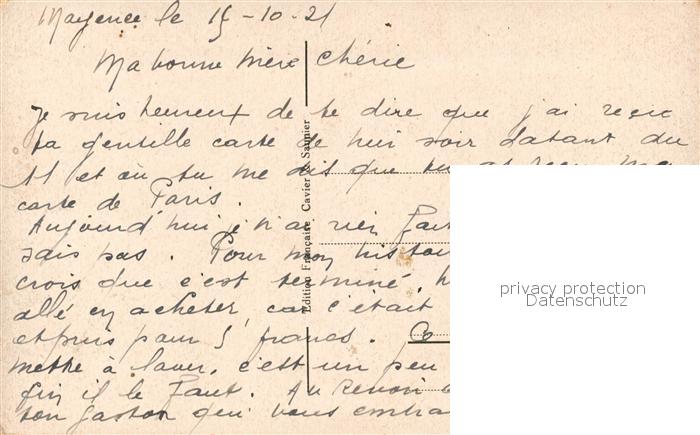 Mayence le 15-10-21
Ma bonne mère chérie
Je suis heureux de te dire que j'ai reçu
ta gentille carte de hier soir datant du
11 et où tu me dis que tu as reçu ma
carte de Paris.
Aujourd'hui je n'ai rien fait
sais pas. Pour mon histoi
crois que c'est terminé,
allé en acheter, car c'était
et puis pour 5 francs. Co
mettre à laver, c'est un peu
fin il le faut. Au revoir
ton gaston qui vous embra
Edition Française Cavier & Saunier
privacy protection
Datenschutz